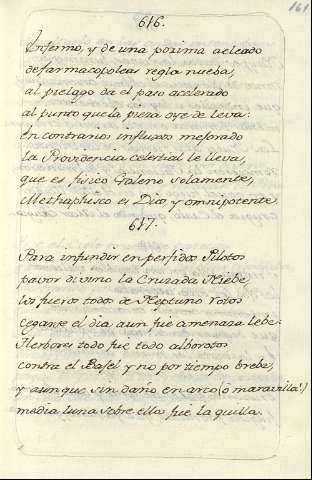 161
616.
Infermo, y de una poxima aeleado
de farmacopoleas regla nueba,
al pielago da el paso accelerado
al punto que la pieza oye de leva:
en contrario influxos mejorado
la Providencia celestial le lleva,
que es fisico Galeno solamente,
Methaphisico es Dios, y omnipotente.
617.
Para infundir en perfidos Pilotos
pavor divino la Cruzada Niebe,
los fueros todos de Neptuno rotos
cegarse el dia aun fue amenaza lebe:
herbores todo fue, todo alborotos
contra el Bajel y no por tiempo brebe,
y aunque sin daño en arco (ó maravilla!)
media luna sobre ella fue la quilla.